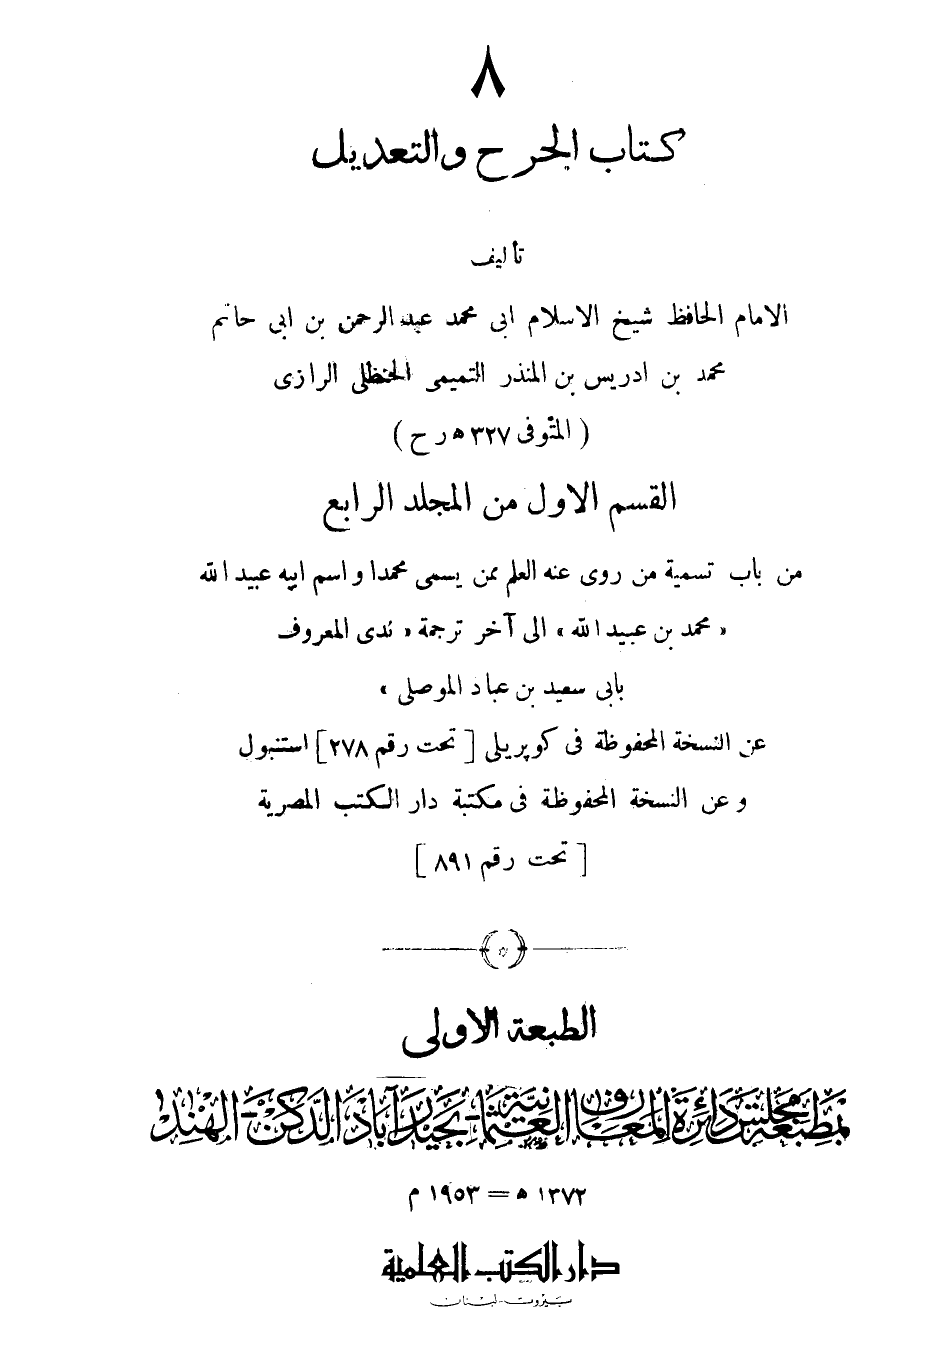 ٨
كتاب الجرح والتعديل
تأليف
الامام الحافظ شيخ الاسلام ابى محمد عبد الرحمن بن ابى حاتم
محمد بن ادريس بن المنذر التميمى الحنظلى الرازى
( المتوفى ٣٢٧ ه رح )
القسم الاول من المجلد الرابع
من باب تسمية من روى عنه العلم ممن يسمى محمدا واسم ابيه عبيد الله
« محمد بن عبيد الله » الى آخر ترجمة « ندى المعروف
بابى سعيد بن عباد الموصلى »
عن النسخة المحفوظة فى كوپريلى [ تحت رقم ٢٧٨ ] استنبول
و عن النسخة المحفوظة فى مكتبة دار الكتب المصرية
[ تحت رقم ٨٩١ ]
الطبعة الاولى
بمطبعة مجلس دائرة المعارف العثمانية بحيدرآباد الدكن - الهند
١٣٧٢ ه = ١٩٥٣ م
دار الكتب العلمية
بيروت - لبنان